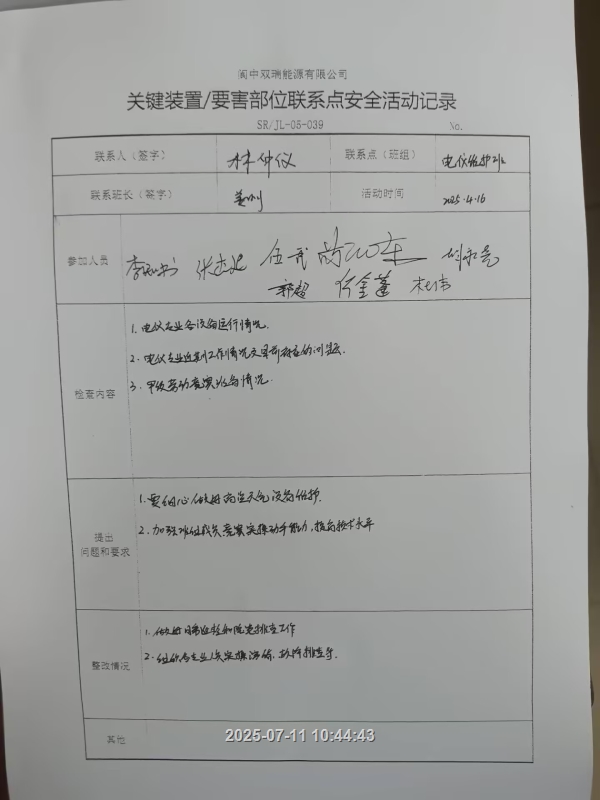 阆中双瑞能源有限公司
关键装置/要害部位联系点安全活动记录
SR/JL-05-039 No.
联系人（签字） 林仲仪 联系点（班组） 电仪维护班
联系班长（签字） 活动时间 2025.4.16
参加人员
伍武
郭超 何金蓬 杜伟
检查内容
1. 电仪专业各设备运行情况.
2. 电仪专业近期工作情况及目前存在的问题.
3. 甲烷劳动竞赛准备情况.
提出
问题和要求
1. 要细心做好雨天气设备维护.
2. 加强难位或失竞赛实操动手能力,提高技术水平
整改情况
1. 做好日常巡检和隐患排查工作
2. 组织各专业人实操演练、故障排查等.
其他
2025-07-11 10:44:43